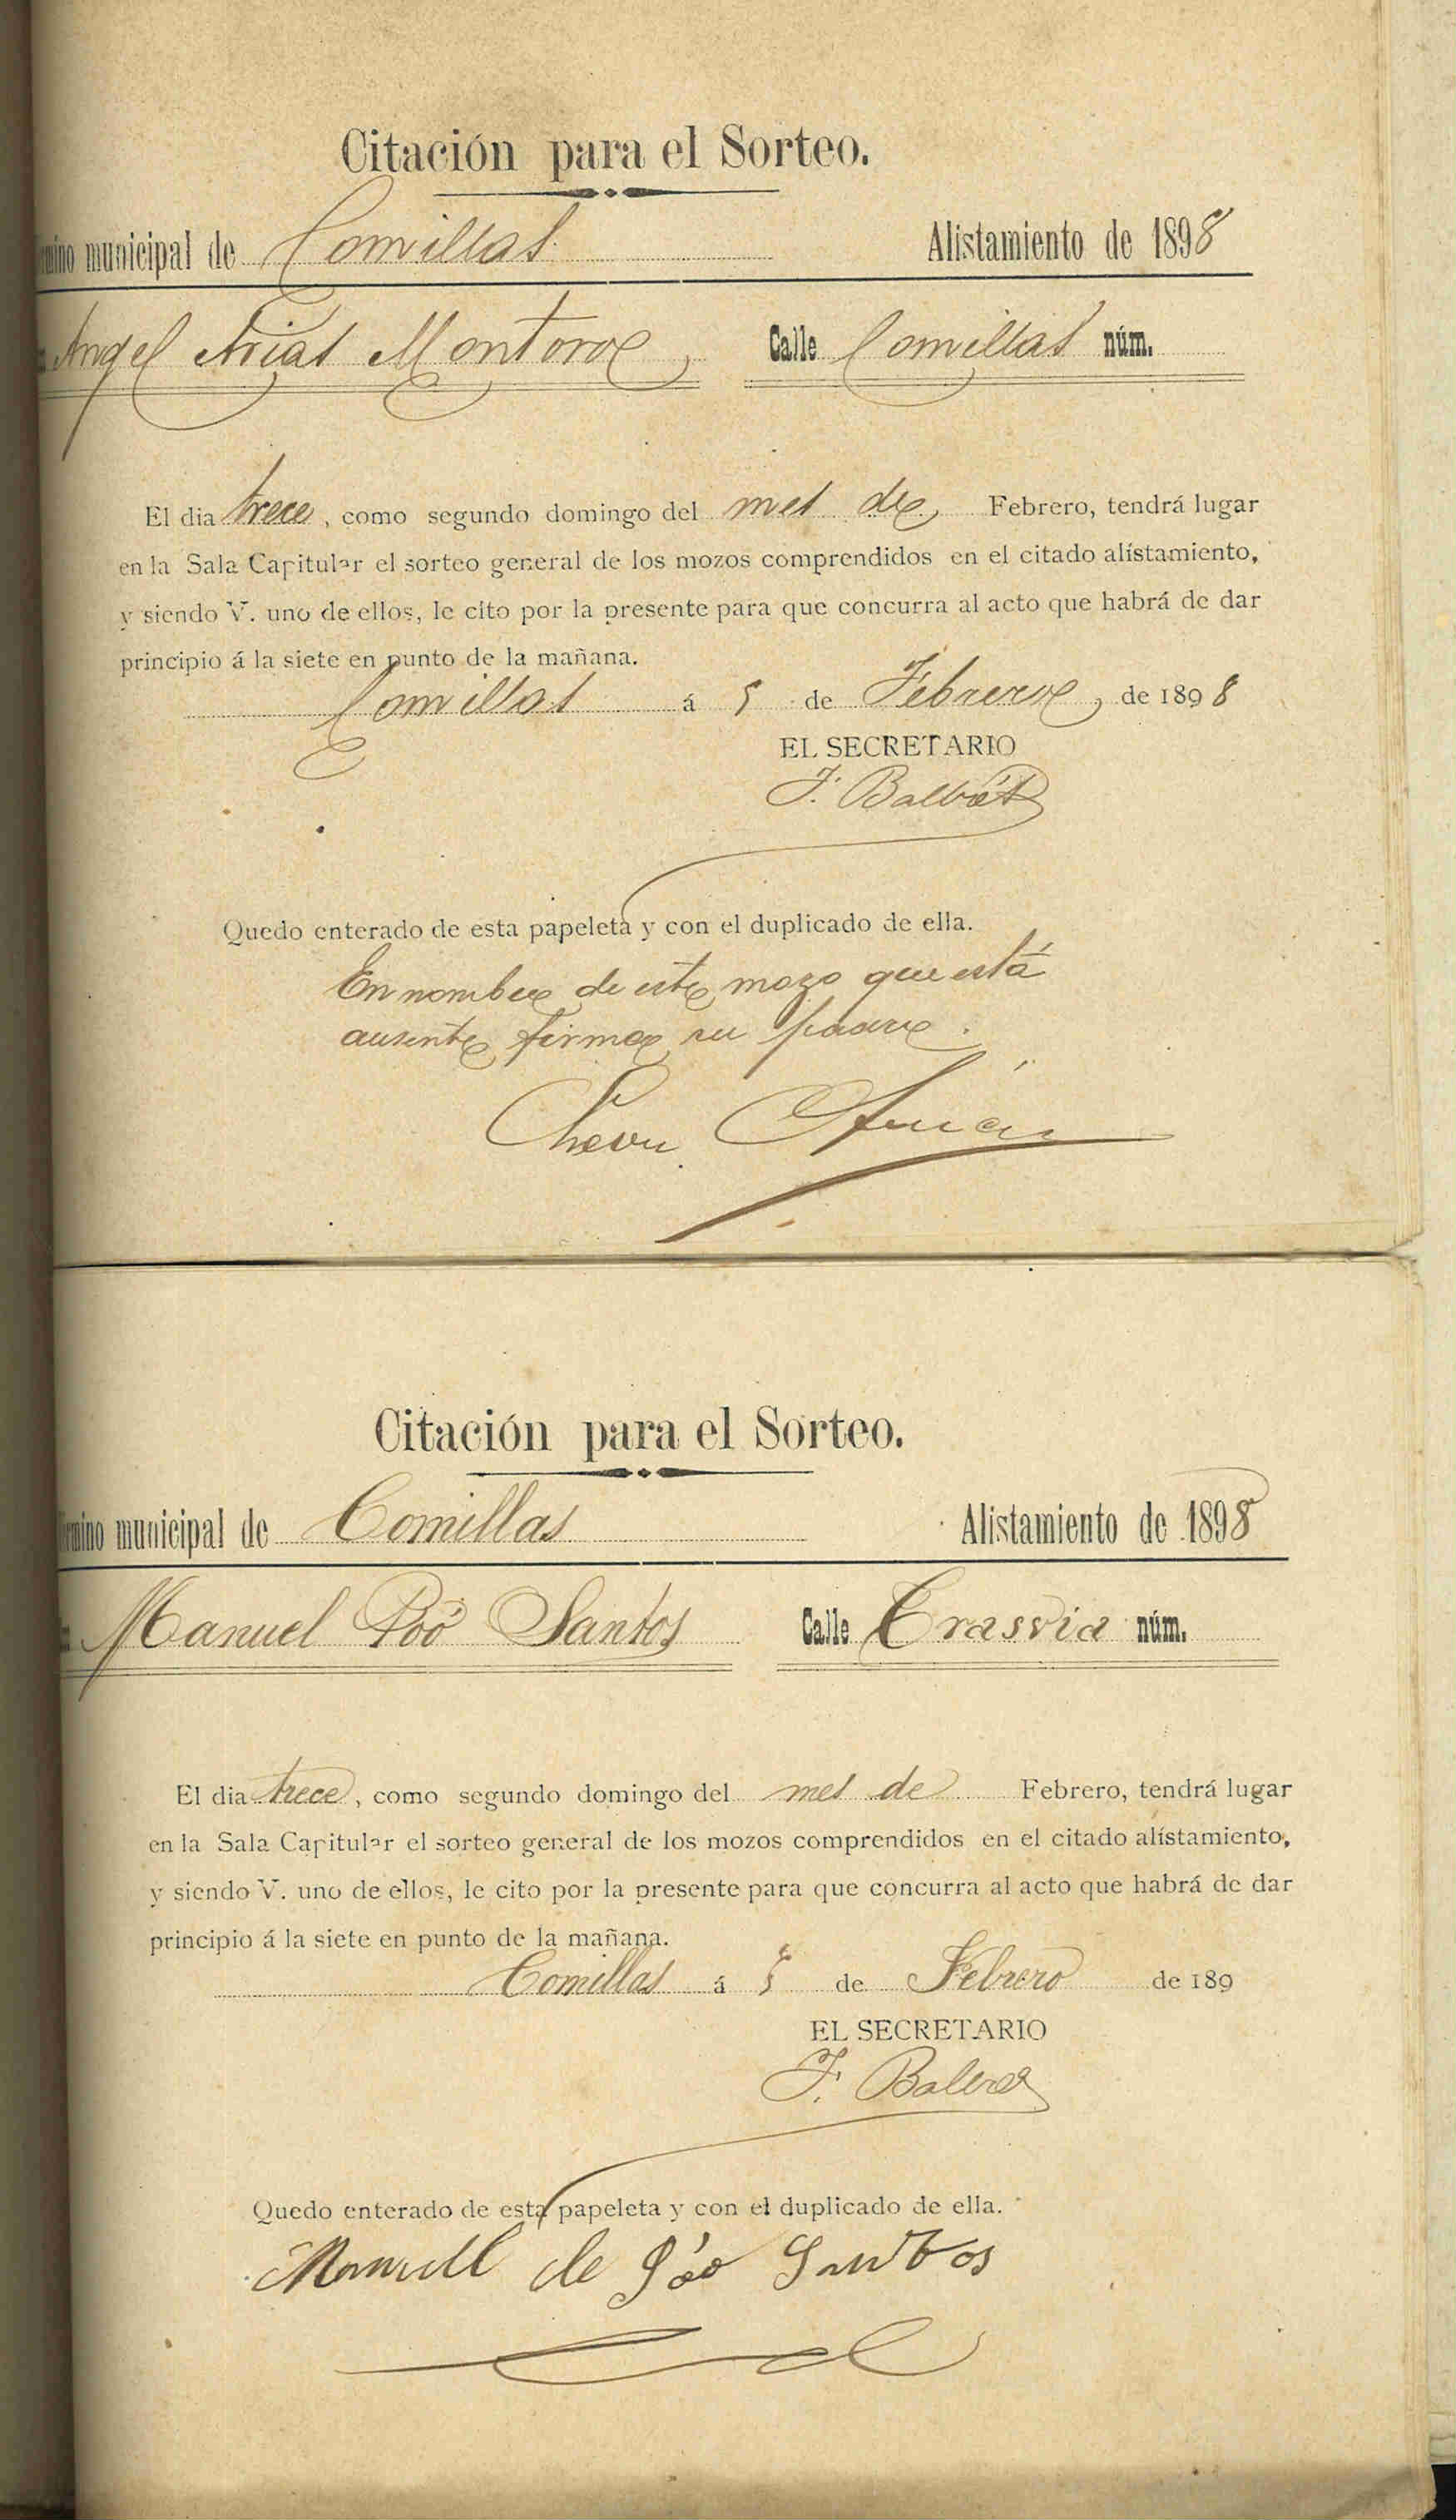 Citación para el Sorteo.
mino municipal de Comillas Alistamiento de 1898
Angel Arias Montoro Calle Comillas núm.
El dia trece, como segundo domingo del mes de Febrero, tendrá lugar
en la Sala Capitular el sorteo general de los mozos comprendidos en el citado alistamiento,
y siendo V. uno de ellos, le cito por la presente para que concurra al acto que habrá de dar
principio á la siete en punto de la mañana.
Comillas á 5 de Febrero de 1898
EL SECRETARIO
F. Balbás
Quedo enterado de esta papeleta y con el duplicado de ella.
En nombre de este mozo que está
ausente firma su padre.
Citación para el Sorteo.
rmino municipal de Comillas Alistamiento de 1898
Manuel Poó Santos Calle Trasvia núm.
El dia trece, como segundo domingo del mes de Febrero, tendrá lugar
en la Sala Capitular el sorteo general de los mozos comprendidos en el citado alistamiento,
y siendo V. uno de ellos, le cito por la presente para que concurra al acto que habrá de dar
principio á la siete en punto de la mañana.
Comillas á 5 de Febrero de 189
EL SECRETARIO
F. Balbás
Quedo enterado de esta papeleta y con el duplicado de ella.
Manuel de Póo Santos